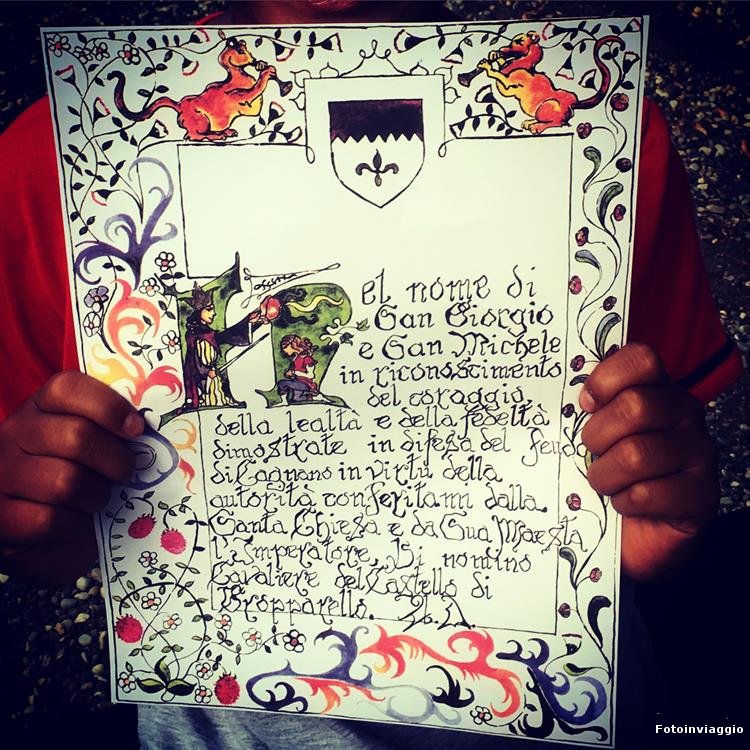 Nel nome di
San Giorgio
e San Michele
in riconoscimento
del coraggio,
della lealtà e della fedeltà
dimostrate in difesa del feudo
di Cagnano in virtù della
autorità conferitami dalla
Santa Chiesa e da Sua Maestà
l'Imperatore, Vi nomino
Cavaliere del Castello di
Gropparello.
Fotoinviaggio